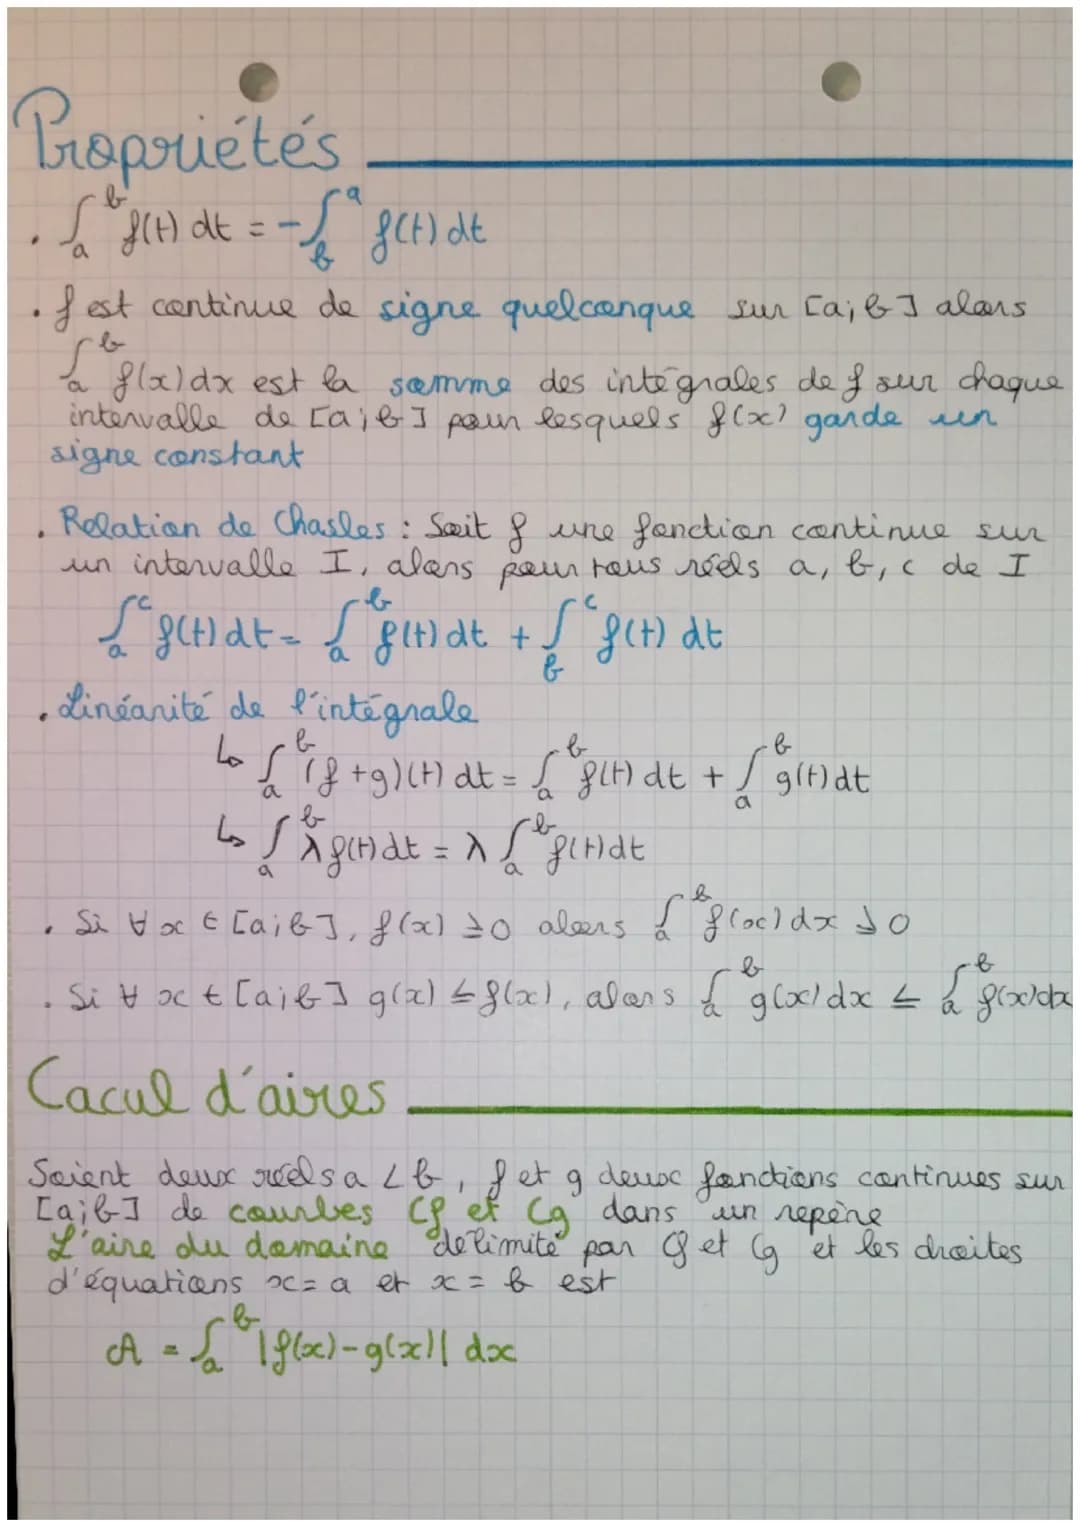 Propriétés
• ∫_a^b f(t) dt = -∫_b^a f(t) dt
• f est continue de signe quelconque sur [a;b] alors
∫_a^b f(x)dx est la somme des intégrales de f sur chaque
intervalle de [a;b] pour lesquels f(x) garde un
signe constant
• Relation de Chasles : Soit f une fonction continue sur
un intervalle I, alors pour tous réels a, b, c de I
∫_a^c f(t) dt = ∫_a^b f(t) dt + ∫_b^c f(t) dt
• Linéarité de l'intégrale
↳ ∫_a^b (f+g)(t) dt = ∫_a^b f(t) dt + ∫_a^b g(t) dt
↳ ∫_a^b λ f(t) dt = λ ∫_a^b f(t) dt
• Si ∀ x ∈ [a;b], f(x) ≥ 0 alors ∫_a^b f(x) dx ≥ 0
• Si ∀ x ∈ [a;b] g(x) ≤ f(x), alors ∫_a^b g(x) dx ≤ ∫_a^b f(x) dx
Cacul d'aires
Soient deux réels a < b, f et g deux fonctions continues sur
[a;b] de courbes Cf et Cg dans un repère
L'aire du domaine délimité par Cf et Cg et les droites
d'équations x = a et x = b est
A = ∫_a^b |f(x)-g(x)| dx